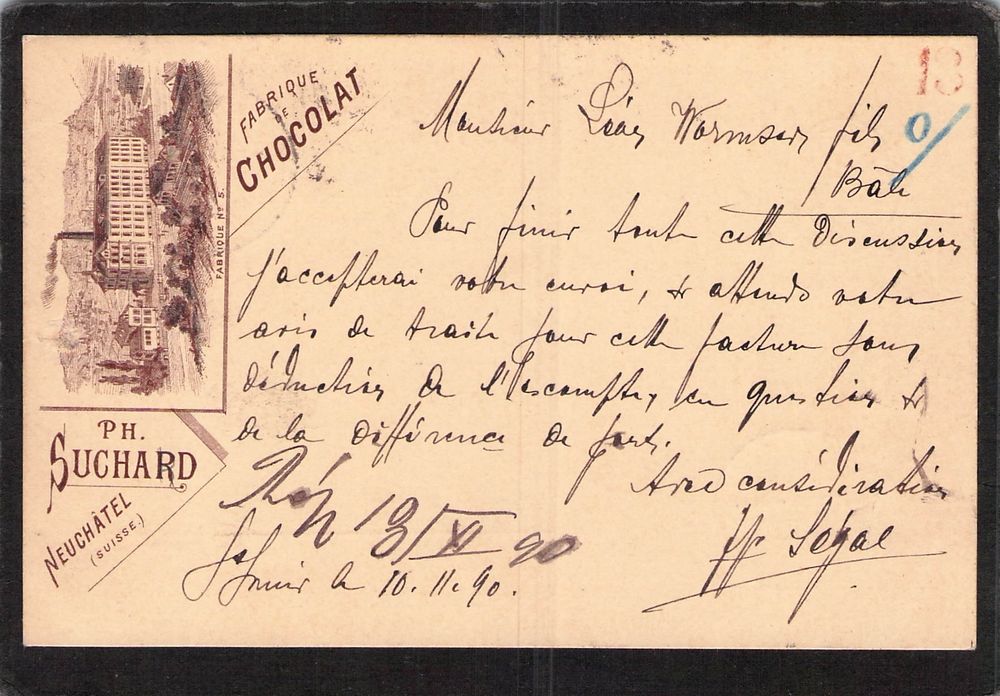 FABRIQUE
DE
CHOCOLAT
FABRIQUE No 5.
PH.
SUCHARD
NEUCHÂTEL
(SUISSE.)
13
Monsieur Léon Wormser fils
Bâle
Pour finir toute cette Discussion
j'accepterai votre envoi, & attends votre
avis de traite pour cette facture sous
déduction de l'escompte, en question &
de la différence de port.
Avec considération
Segal
Rép 13/XI 90
le 10. 11. 90.